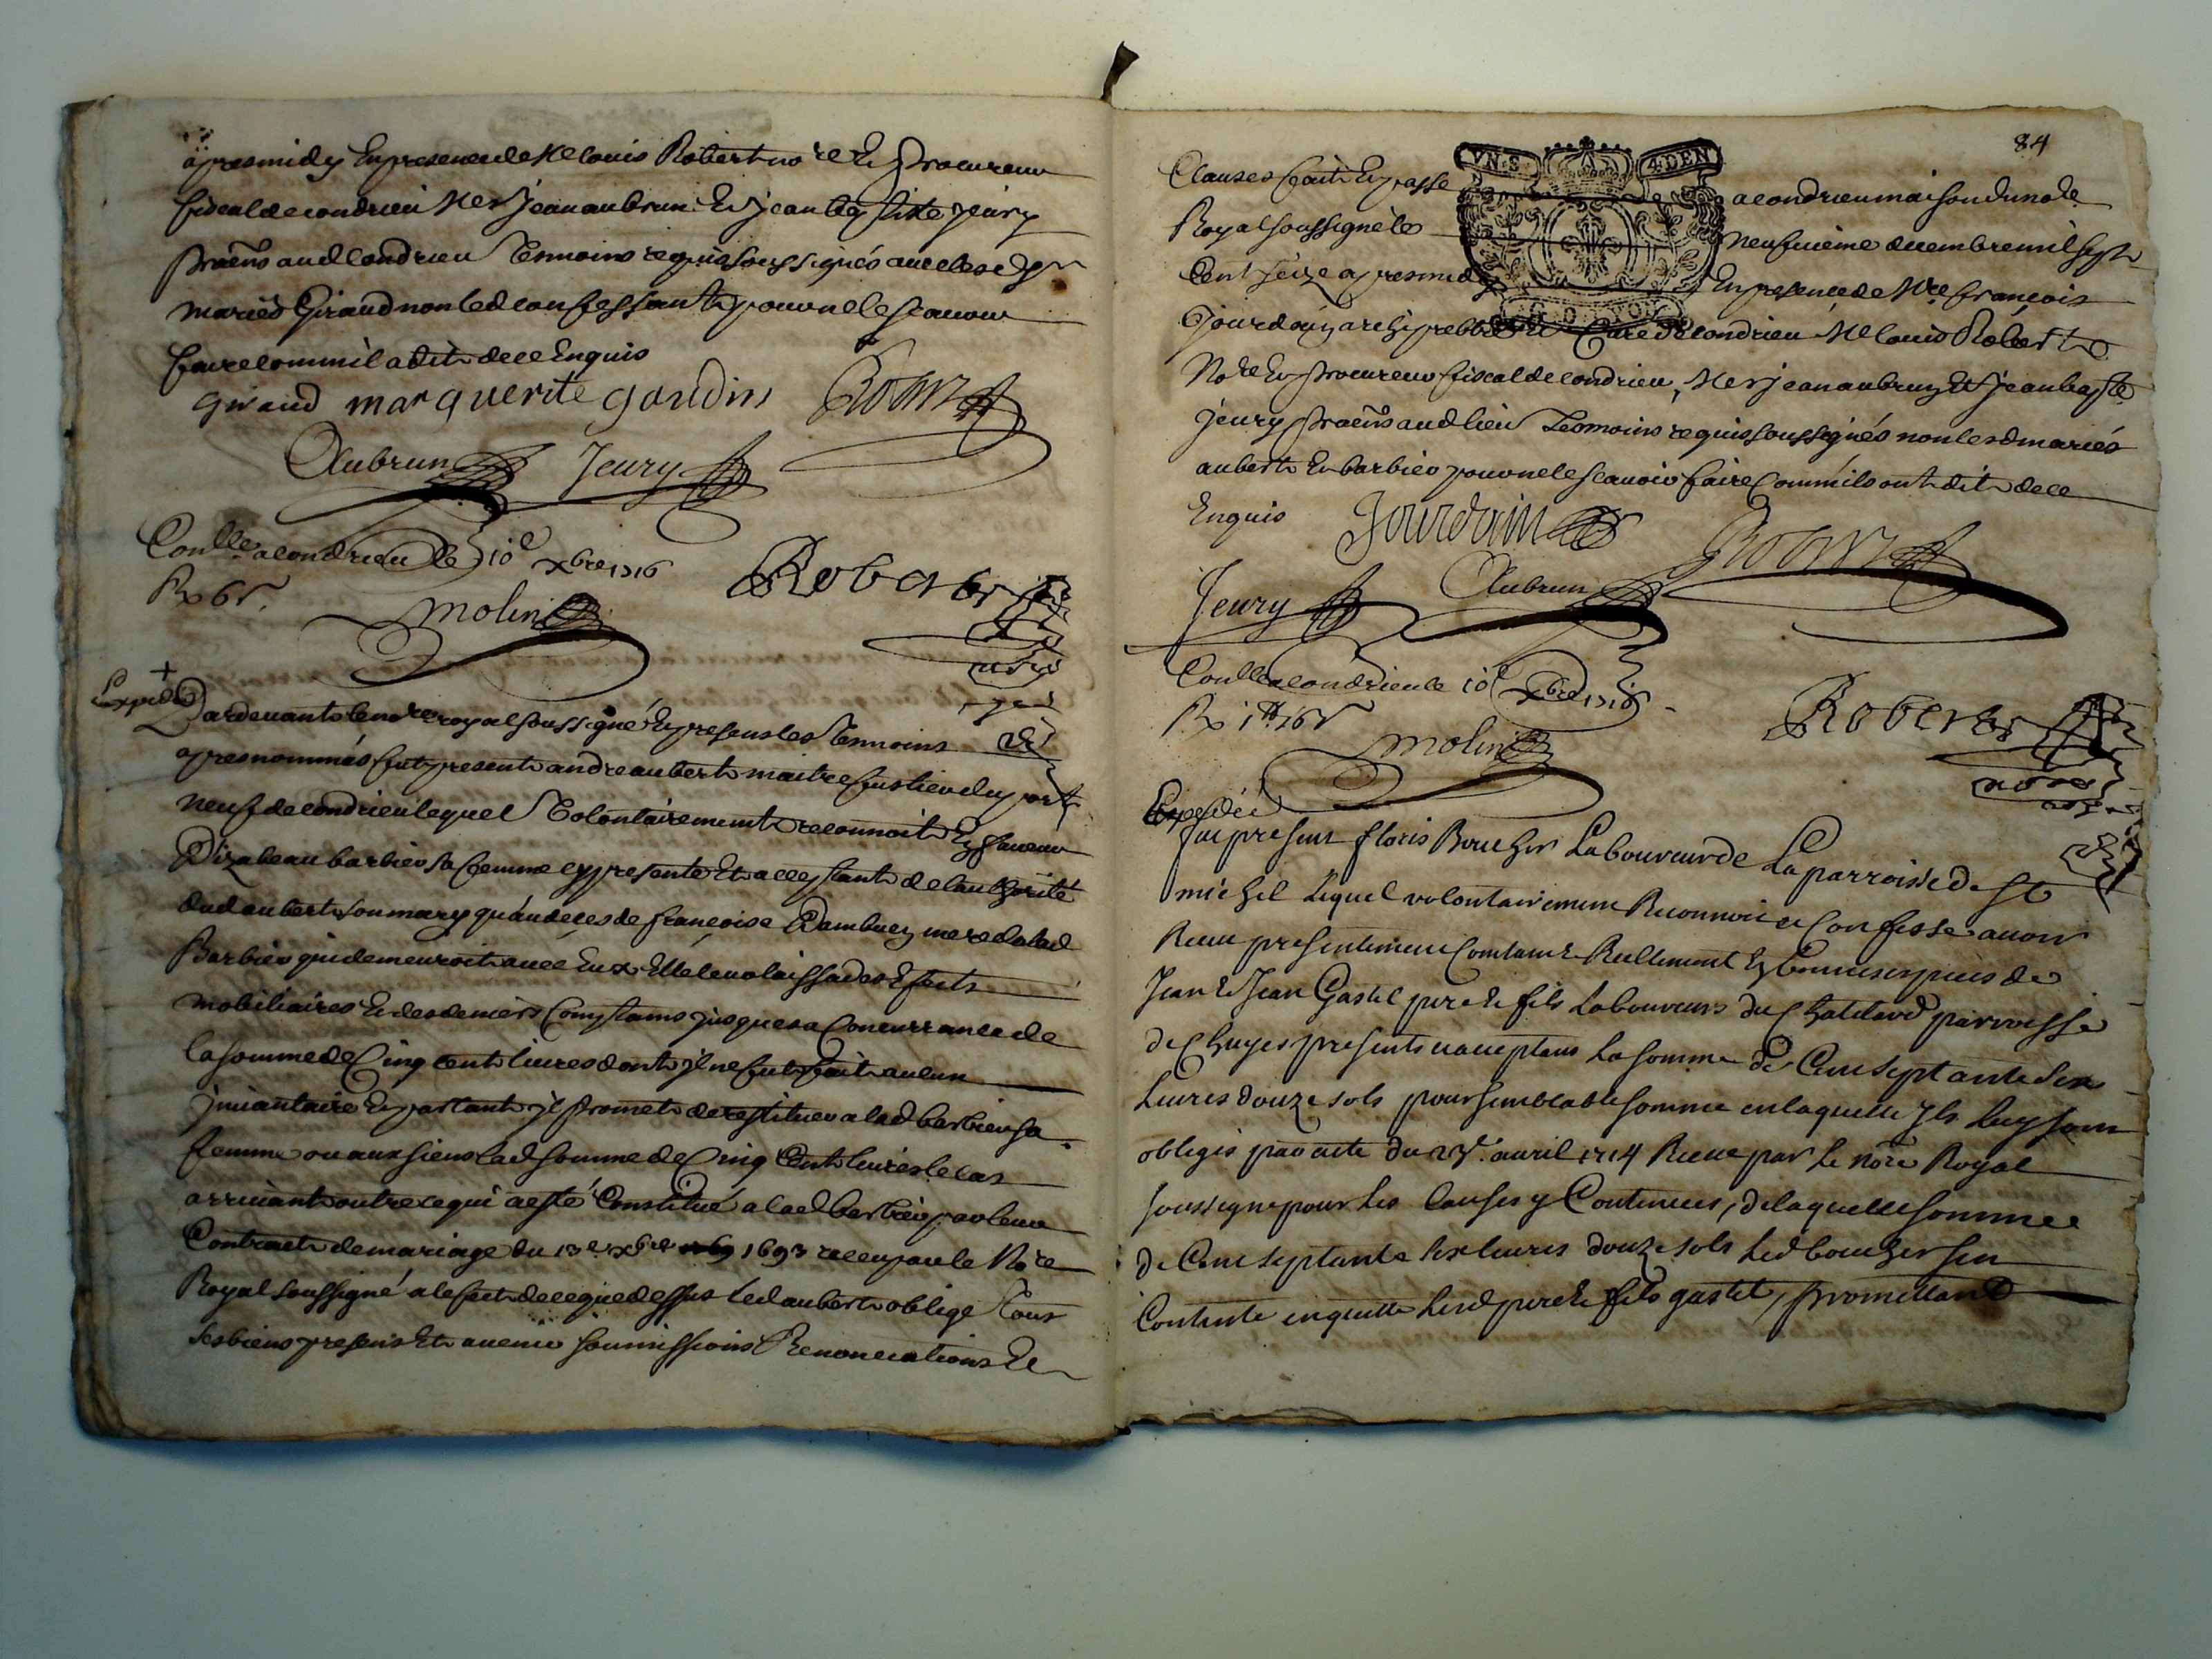 apresmidy En presence de Me Louis Robert no re Et procureur
fiscal de condrieu Mes jean aubrun Et jean bapte jeury
praens aud condrieu Tesmoins requis soussignés avec lesd
mariés Giraud non led confessant pour ne le scavoir
faire comm'il a dit de ce Enquis
giraud marguerite gaudin Robert
Aubrun Jeury
Conlle a condrieu le 10e xbre 1716
Rx 6s.
molin Robert
nore
Expedié
Pardevant le no re royal soussigné Et presens les Tesmoins
apres nommés fut present andre aubert maitre fustier du port
neuf de condrieu lequel Volontairement reconnoit En faveur
D'izabeau barbier sa femme cy presente Et acceptant de l'authorité
dud aubert son mary qu'au deces de francoise mere de lad
Barbier qui demeuroit avec Eux Elle leur laissa des Efects
mobiliaires Et des deniers Comptants jusques a Concurrance de
la somme de Cinq Cent livres dont jl ne fut fait aucun
jnvantaire Et partant jl promet de restituer a lad barbier sa
femme ou aux siens lad somme de Cinq Cent livres le cas
arrivant outre ce qui a esté Constitué a lad barbier par leur
Contract de mariage du 13e xbre 1693 receu par le No re
Royal soussigné a lefect de ce que dessus led aubert oblige Tous
ses biens presens Et avenir soumissions Renonciations Et
84
VN.S. 4.DEN
Clauses fait Et passe a condrieu maison du no re
Royal soussigné le neufvieme decembre mil sept
Cent seize apresmidy En presence de Mre francois
Jourdain archiprebtre Et Curé de condrieu Me Louis Robert
No re Et procureur fiscal de condrieu, Mes jean aubrun Et jean bapte
jeury praens aud lieu Tesmoins requis soussignés non lesd mariés
aubert Et barbier pour ne le scavoir faire Comm'ils ont dit de ce
Enquis Jourdain Robert
Jeury Aubrun
Conlle a condrieu le 10e xbre 1716
Rx 1# 16s
molin Robert
nore
Expedié
fut present floris Boucher Laboureur de La parroisse de St
michel Lequel volontairement Reconnoit et Confesse avoir
Receu presentement Comtant Reellement En bonnes espeees de
Jean Et Jean Gastel pere Et fils Laboureurs du Chatelard parroisse
de Chuyes presents et acceptans La somme de Cent septante six
Livres douze sols pour semblable somme en laquelle jls Luy sont
obligés par acte du avril 1714 Receu par Le nore Royal
soussigné pour Les Causes y Contenues, de laquelle somme
de Cent septante six livres douze sols Led boucher sen
Contente en quitte Lesd pere Et fils gastel, promettant